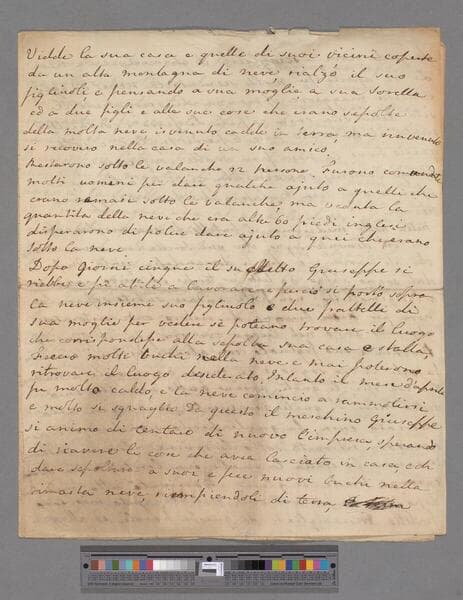 Vidde la sua casa e quelle di suoi vicini coperte
da un alta montagna di neve, rialzò il suo
figliuoli, e pensando a sua moglie, a sua sorella
ed a due figli e alle sue cose che erano sepolte
della molta neve, isvenuto cadde in terra, ma rinvenuto
si recoverò nella casa di un suo amico.
Restarono sotto le valanche 22 persone. Furono comandati
molti uomini per dare qualche ajuto a quelle che
erano rimasi sotto le valanche, ma veduta la
quantita delle neve che era alta 60 piedi inglesi
disperarono di potere dare ajuto a quei che erano
sotto la neve
Dopo Giorni cinque il suddetto Giuseppe si
riebbe e fu atile a lavorare e perciò si portò sopra
la neve insieme suo figliuolo e due fratelli di
sua moglie per vedere se poteano trovare il luogo
che corrispondesse alla sepolta sua casa e stalla,
Feccero molti buchi nella neve e mai poterono
ritrovare il luogo desiderato. Intanto il mese d'aprile
fu molto caldo, e la neve comincio a rammolirsi
e molto si squagliò Da questo il meschino Giuseppe
si animò di tentare di nuovo l'impresa, sperando
di riavere le cose che avea lasciato in casa, e di
dare sepoltura a suoi e fece nuovi buchi nella
rimasta neve, riempiendoli di terra,